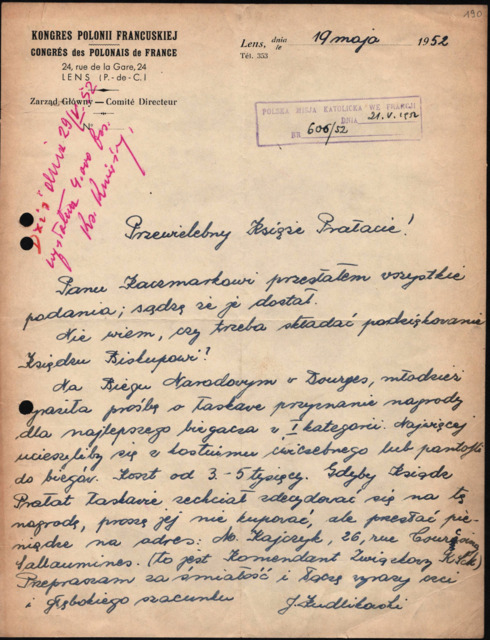 190
KONGRES POLONII FRANCUSKIEJ
CONGRÈS des POLONAIS de FRANCE
24, rue de la Gare, 24
LENS (P.-de-C.)
Zarząd Główny — Comité Directeur
N°
Lens, dnia le 19 maja 1952
Tél. 353
POLSKA MISJA KATOLICKA WE FRANCJI
DNIA 21.V.1952
NR 606/52
Dziś dnia 29/V 52
wysłałem 4.000 frs.
Ks.
Przewielebny Księże Prałacie!
Panu Kaczmarkowi przesłałem wszystkie
podania; sądzę że je dostał.
Nie wiem, czy trzeba składać podziękowanie
Księdzu Biskupowi?
Na Biegu Narodowym w Dourges, młodzież
prośbę o łaskawe przyznanie nagrody
dla najlepszego biegacza w I kategorii. Najwięcej
ucieszyliby się z kostiumu ćwiczebnego lub pantofli
do biegów. Koszt od 3-5 tysięcy. Gdyby Ksiądz
Prałat łaskawie zechciał zdecydować się na tę
nagrodę, proszę jej nie kupować, ale przesłać pie-
niądze na adres: Kajczyk, 26, rue
Sallaumines. (to jest Komendant Związkowy
Przepraszam za śmiałość i łączę wyrazy czci
i głębokiego szacunku
J. Kudlikowski